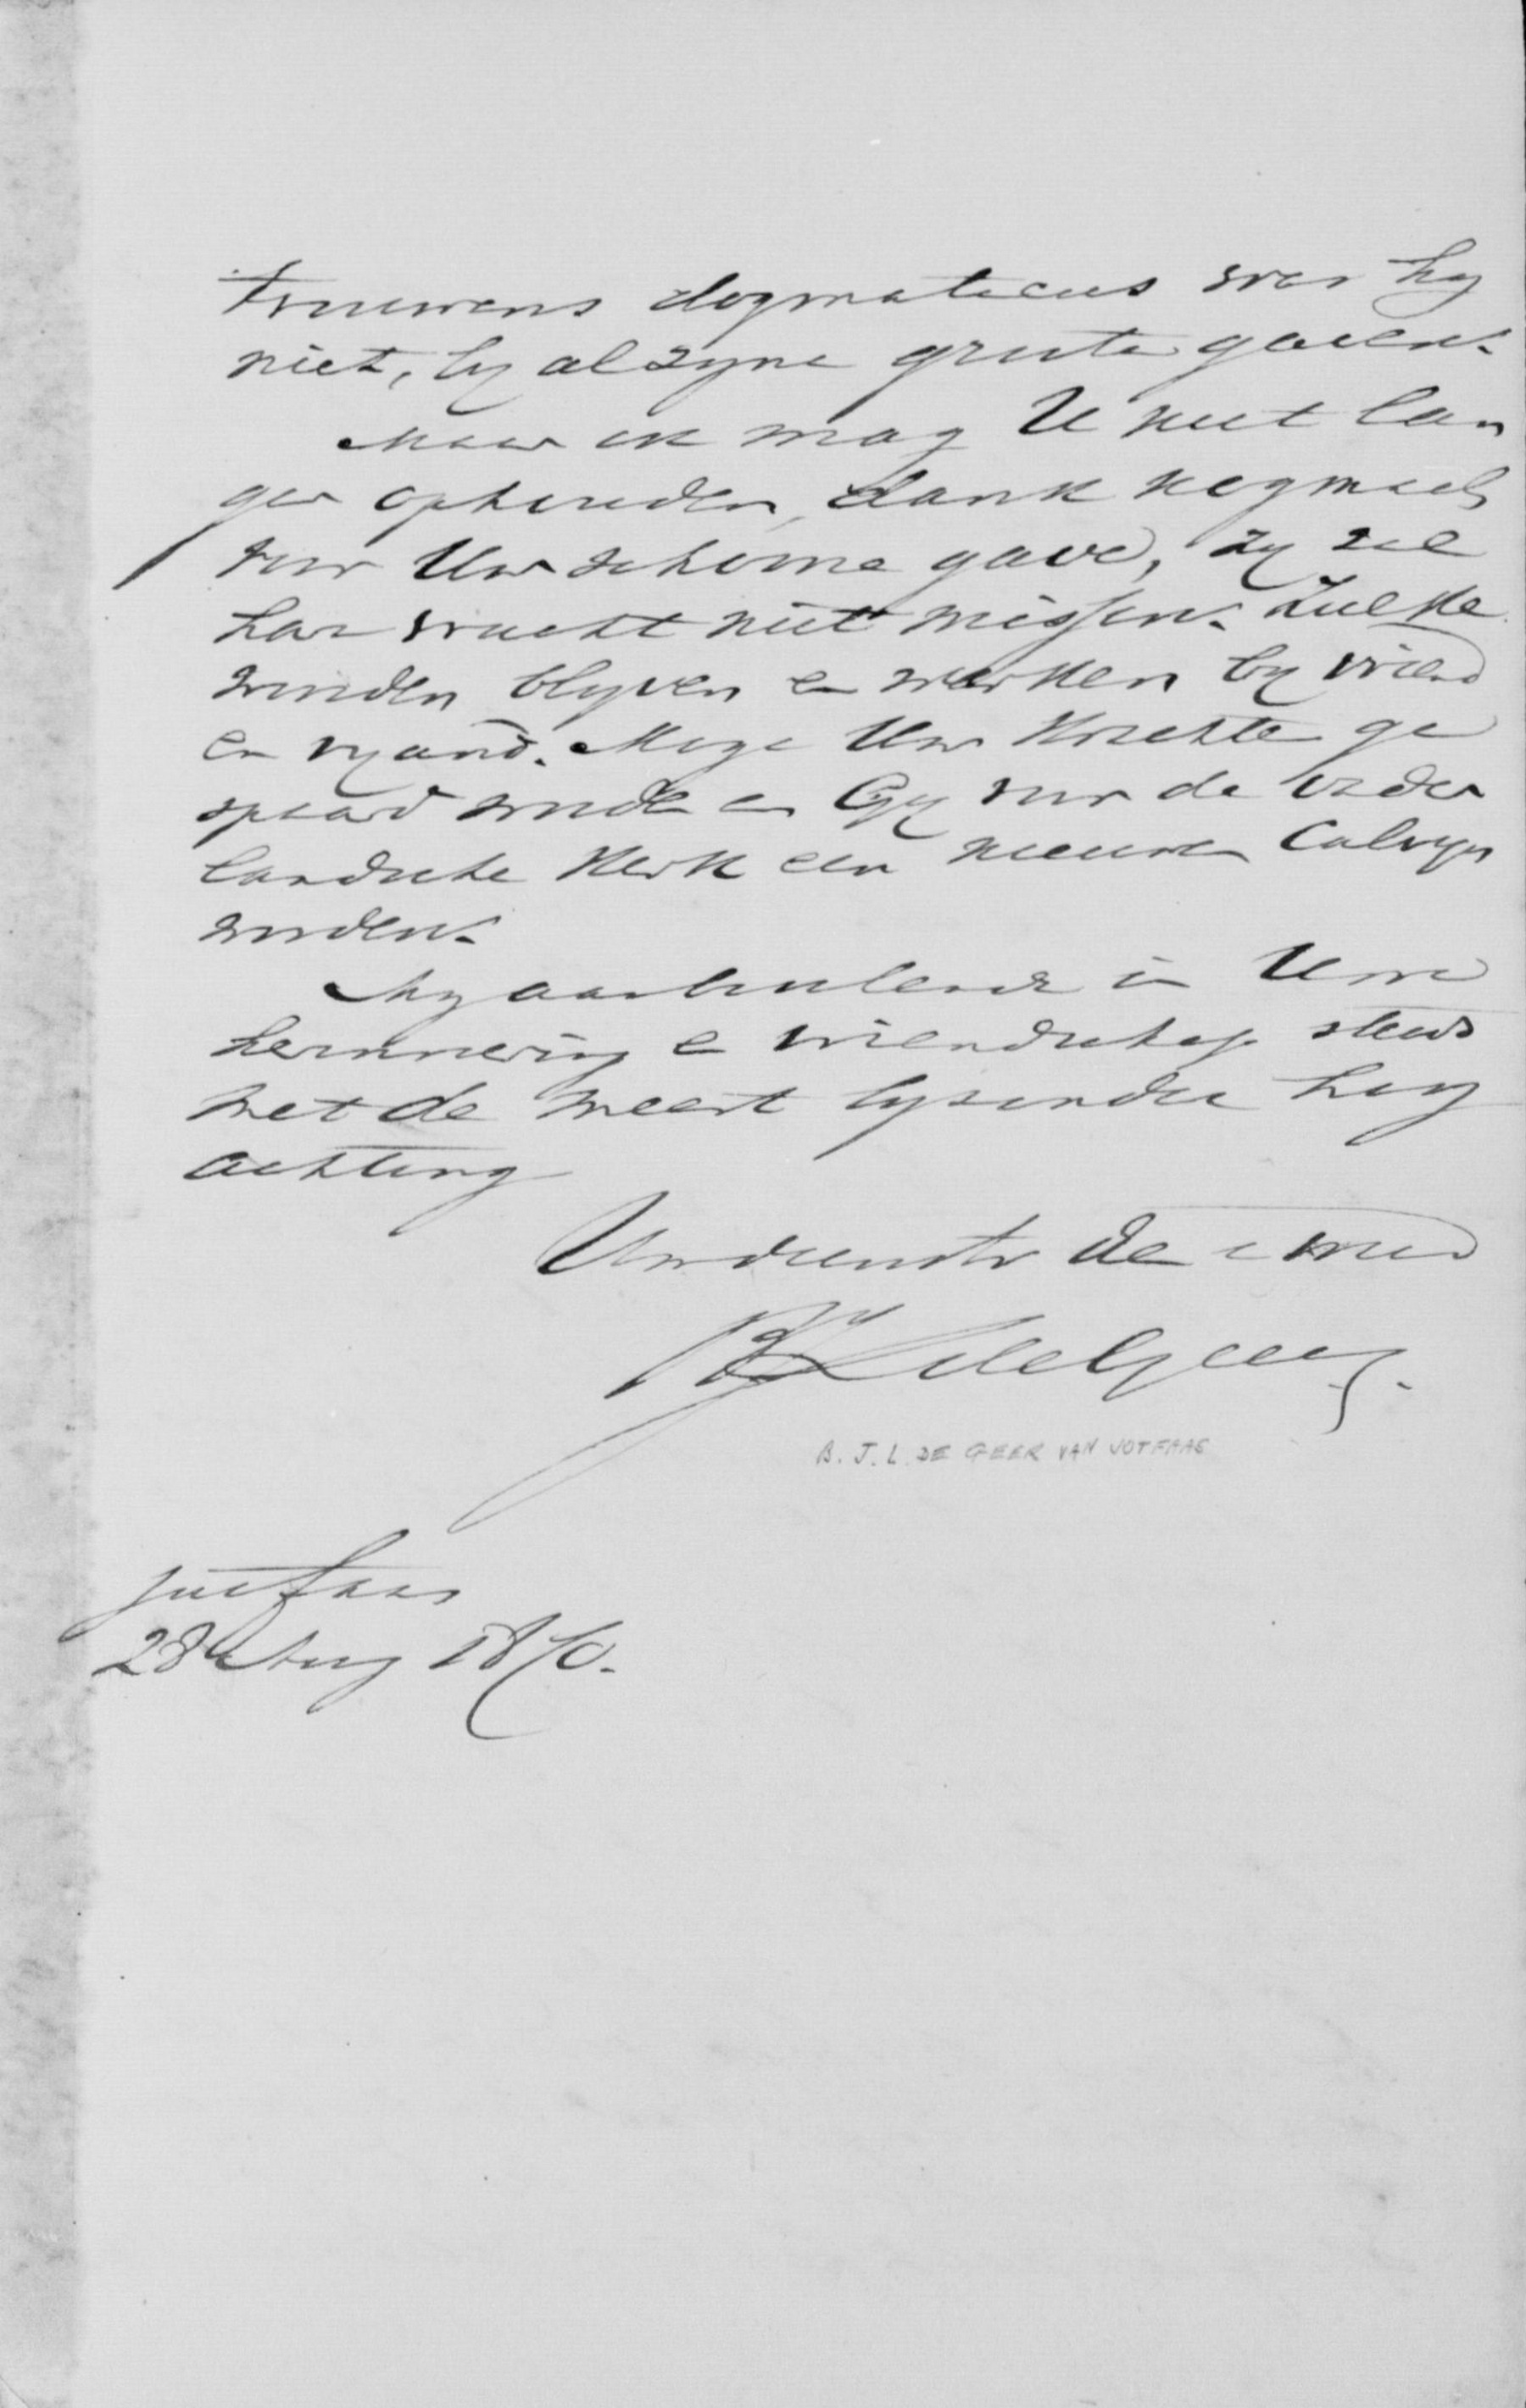 trouwens dogmaticus was hy
niet, by al zyne groote gaven.
Maar ik mag U niet lan
ger ophouden, dank nogmaals
voor Uw schoone gave, zy zal
haar vrucht niet missen. Zulke
woorden blyven en werken by vriend
en vyand. Moge Uw krachten ge
spaard worden en Gy voor de vader
landsche Kerk een nieuwen Calvyn
worden.
My aanbevelende in Uwe
herinnering en vriendschap steeds
met de meest byzondere hoog
achting
Uw dienstv de en vriend
BJL de Geer
B. J. L. DE GEER VAN JUTFAAS
Jutfaas
28 Aug 1870.